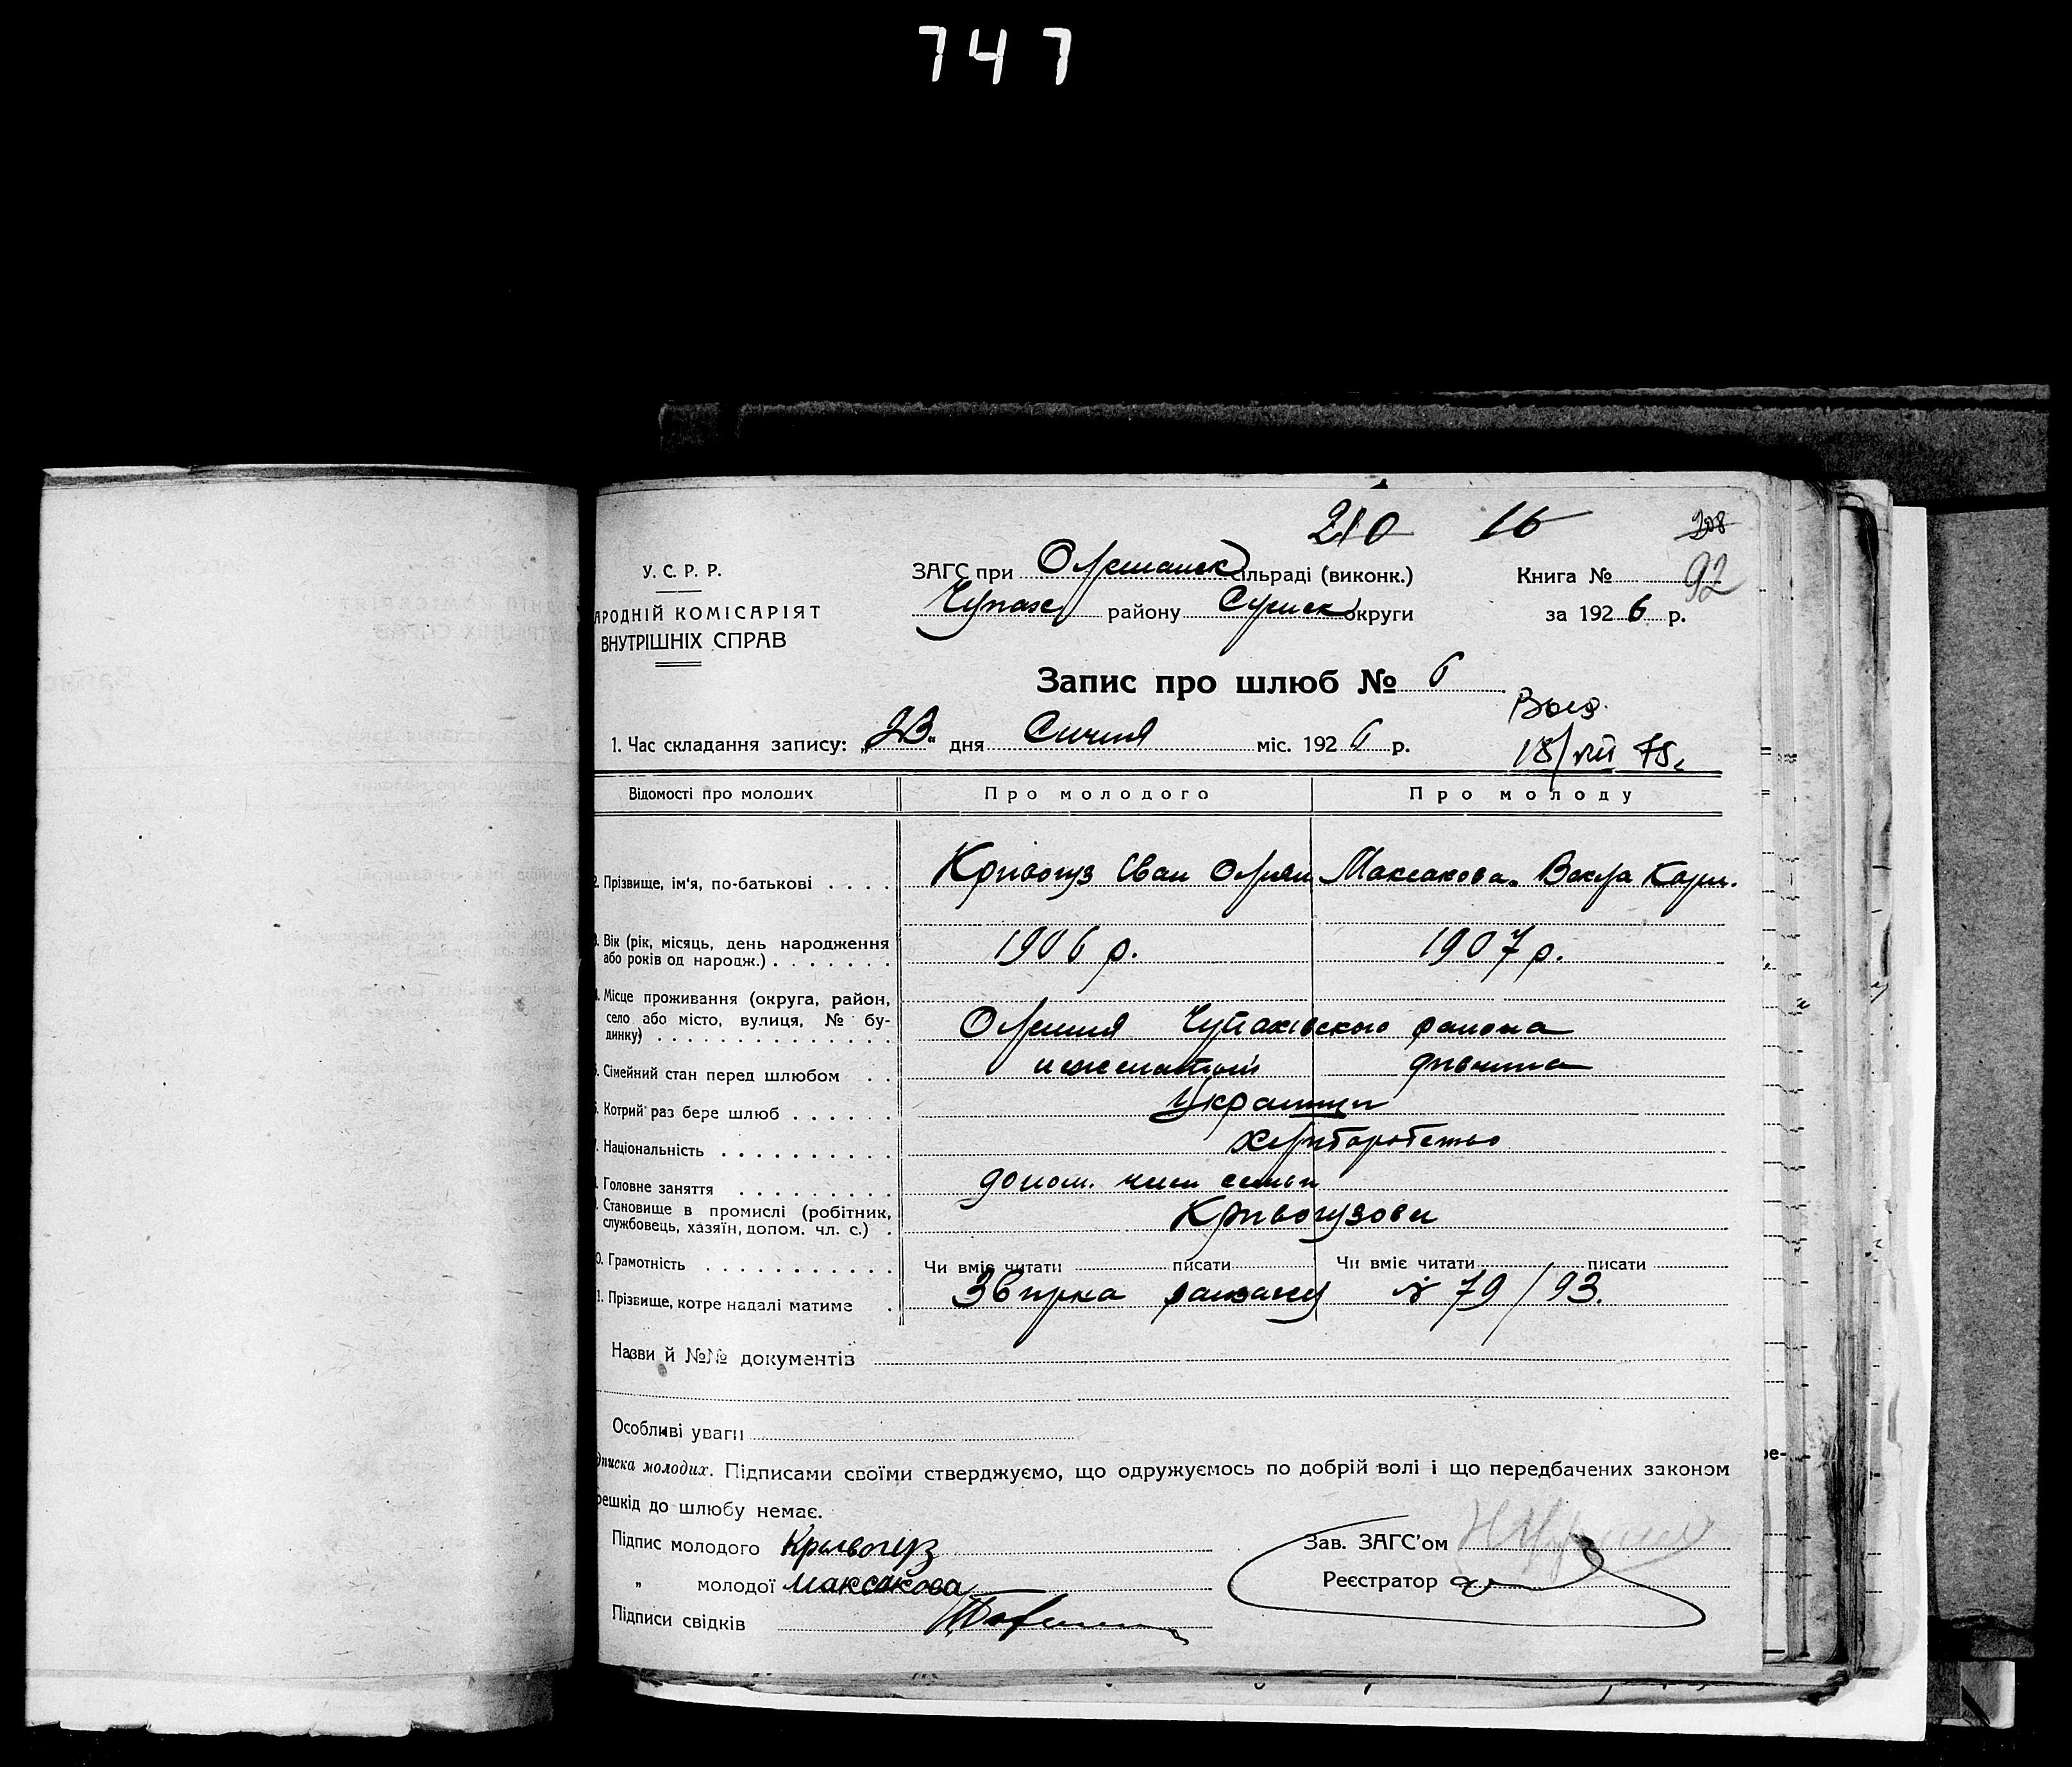 747
210 16 208
У. С. Р. Р.
ЗАГС при Олешанськ сільраді (виконк.)
Книга № 92
АРОДНІЙ КОМІСАРІЯТ
ВНУТРІШНІХ СПРАВ
Чупах району Сумськ округи
за 1926 р.
Запис про шлюб № 6
Выд.
18/VIII 75г
1. Час складання запису: „23“ дня Січня міс. 1926 р.
Відомості про молодих
Про молодого
Про молоду
2. Прізвище, ім'я, по-батькові . . . .
Кривогуз Іван
Максакова Вокла Карп.
3. Вік (рік, місяць, день народження
або років од народж.) . . . . . . .
1906 р.
1907 р.
4. Місце проживання (округа, район,
село або місто, вулиця, № бу-
динку) . . . . . . . . . . . . . .
Олешня Чупахівского района
5. Сімейний стан перед шлюбом . .
нежонатий
дівчина
6. Котрий раз бере шлюб . . . . . .
Українці
7. Національність . . . . . . . . . .
хліборобство
8. Головне заняття . . . . . . . . .
допом. член семьи
9. Становище в промислі (робітник,
службовець, хазяїн, допом. чл. с.) .
Кривогузови
10. Грамотність . . . . . . . . . . .
Чи вміє читати писати
Чи вміє читати писати
11. Прізвище, котре надалі матиме .
Звірка загсу № 79/93.
Назви й №№ документів
Особливі уваги
дписка молодих. Підписами своїми стверджуємо, що одружуємось по добрій волі і що передбачених законом
решкід до шлюбу немає.
Підпис молодого Кривогуз
Зав. ЗАГС'ом
„ молодої Максакова
Реєстратор
Підписи свідків